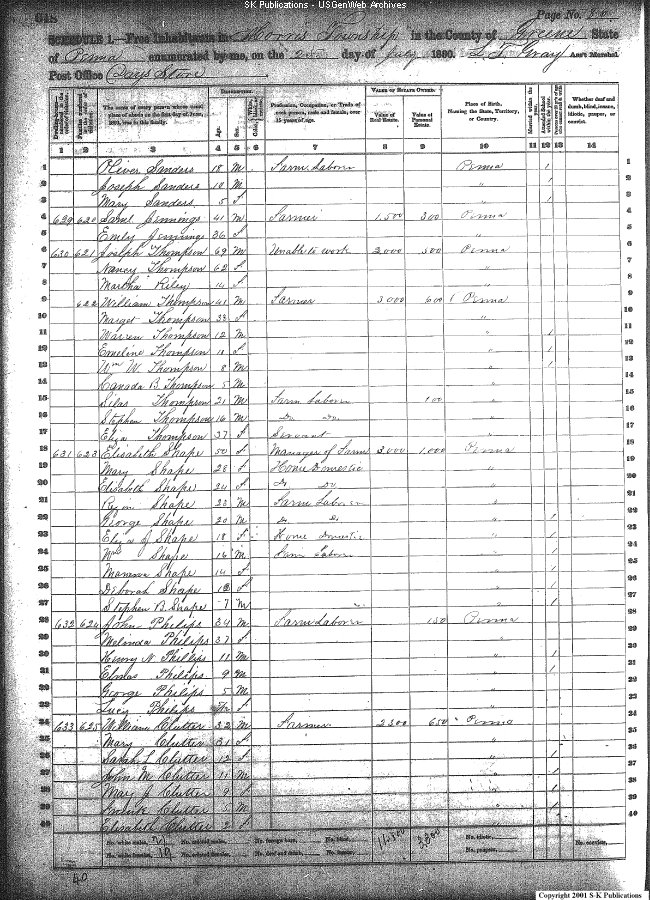 SK Publications - USGenWeb Archives
618
Page No. 80
SCHEDULE 1.—Free Inhabitants in Morris Township in the County of Greene State
of Penna enumerated by me, on the day of July 1860. Gray Ass't Marshal
Post Office Days Store
DESCRIPTION. VALUE OF ESTATE OWNED.
The name of every person whose usual place of abode on the first day of June, 1860, was in this family. Age. Sex. Profession, Occupation, or Trade of each person, male and female, over 15 years of age. Value of Real Estate. Value of Personal Estate. Place of Birth, Naming the State, Territory, or Country. Married within the year. Attended School within the year. Whether deaf and dumb, blind, insane, idiotic, pauper, or convict.
1 2 3 4 5 6 7 8 9 10 11 12 13 14
1 Oliver Sanders 18 M Farm Laborer Penna / 1
2 Joseph Sanders 10 M " / 2
3 Mary Sanders 5 f " / 3
4 629 620 Saml Jennings 41 M Farmer 1,500 300 Penna 4
5 Emily Jennings 36 f " 5
6 630 621 Joseph Thompson 69 M Unable to work 2,000 500 Penna 6
7 Nancy Thompson 62 f " 7
8 Martha Riley 14 f " 8
9 622 William Thompson 41 M Farmer 3000 600 Penna 9
10 Marget Thompson 38 f " 10
11 Warren Thompson 12 M " / 11
12 Emeline Thompson 11 f " / 12
13 Wm W. Thompson 8 M " / 13
14 Canada B. Thompson 5 M " 14
15 Silas Thompson 21 M Farm Laborer 100 " 15
16 Stephen Thompson 16 M Do Do " / 16
17 Eliza Thompson 37 f Servant " 17
18 631 623 Elisabeth Shape 50 f Manager of Farm 3,000 1,000 Penna 18
19 Mary Shape 28 f Home Domestic " 19
20 Elisabeth Shape 24 f Do Do " 20
21 Shape M Farm Laborer " 21
22 George Shape 20 M Do Do " / 22
23 Eliza J Shape 18 f Home Domestic " / 23
24 Wm Shape 16 M Farm Laborer " / 24
25 Shape 14 f " / 25
26 Deborah Shape f " / 26
27 Stephen B. Shape 7 M " / 27
28 632 624 John Philips 34 M Farm Laborer 150 Penna 28
29 Melinda Philips 37 f " 29
30 Henry N Philips 11 M " / 30
31 Philips 9 M " / 31
32 George Philips 5 M " 32
33 Lucy Philips f " 33
34 633 625 William Clutter 32 M Farmer 2300 650 Penna 34
35 Mary Clutter 31 f " 35
36 Sarah L Clutter 12 f " / 36
37 John M Clutter 11 M " / 37
38 Mary J Clutter 9 f " / 38
39 Clutter 5 M " / 39
40 Elisabeth Clutter 2 f " 40
No. white males, 21 No. colored males, No. foreign born, No. blind, 11,800 No. idiotic, No. convicts,
No. white females, 19 No. colored females, No. deaf and dumb, No. insane, No. paupers,
40
Copyright 2001 S-K Publications